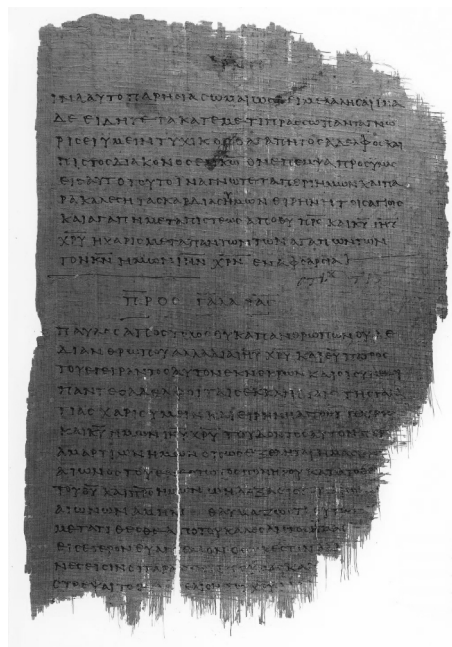 ΙΝΑ ΑΥΤΟ ΠΑΡΗΣΙΑΣΩΜΑΙ ΩΣ ΔΕΙ ΜΕ ΛΑΛΗΣΑΙ ΙΝΑ
ΔΕ ΕΙΔΗΤΕ ΤΑ ΚΑΤ ΕΜΕ ΤΙ ΠΡΑΣΣΩ ΠΑΝΤΑ ΓΝΩ
ΡΙΣΕΙ ΥΜΕΙΝ ΤΥΧΙΚΟΣ Ο ΑΓΑΠΗΤΟΣ ΑΔΕΛΦΟΣ ΚΑΙ
ΠΙΣΤΟΣ ΔΙΑΚΟΝΟΣ ΕΝ Κ̅Ω̅ ΟΝ ΕΠΕΜΨΑ ΠΡΟΣ ΥΜΑΣ
ΕΙΣ ΑΥΤΟ ΤΟΥΤΟ ΙΝΑ ΓΝΩΤΕ ΤΑ ΠΕΡΙ ΗΜΩΝ ΚΑΙ ΠΑ
ΡΑΚΑΛΕΣΗ ΤΑΣ ΚΑΡΔΙΑΣ ΥΜΩΝ ΕΙΡΗΝΗ ΤΟΙΣ ΑΓΙΟΙΣ
ΚΑΙ ΑΓΑΠΗ ΜΕΤΑ ΠΙΣΤΕΩΣ ΑΠΟ Θ̅Υ̅ Π̅Ρ̅Σ̅ ΚΑΙ Κ̅Υ̅ Ι̅Η̅Υ̅
Χ̅Ρ̅Υ̅ Η ΧΑΡΙΣ ΜΕΤΑ ΠΑΝΤΩΝ ΤΩΝ ΑΓΑΠΩΝΤΩΝ
ΤΟΝ Κ̅Ν̅ ΗΜΩΝ Ι̅Η̅Ν̅ Χ̅Ρ̅Ν̅ ΕΝ ΑΦΘΑΡΣΙΑ
ΠΡΟΣ ΓΑΛΑΤΑΣ
ΠΑΥΛΟΣ ΑΠΟΣΤΟΛΟΣ ΟΥΚ ΑΠ ΑΝΘΡΩΠΩΝ ΟΥΔΕ
ΔΙ ΑΝΘΡΩΠΟΥ ΑΛΛΑ ΔΙΑ Ι̅Η̅Υ̅ Χ̅Ρ̅Υ̅ ΚΑΙ Θ̅Υ̅
ΤΟΥ ΕΓΕΙΡΑΝΤΟΣ ΑΥΤΟΝ ΕΚ ΝΕΚΡΩΝ ΚΑΙ ΟΙ ΣΥΝ
ΠΑΝΤΕΣ ΑΔΕΛΦΟΙ ΤΑΙΣ ΕΚΚΛΗΣΙΑΙΣ ΤΗΣ ΓΑΛΑ
ΤΙΑΣ ΧΑΡΙΣ ΥΜΕΙΝ ΚΑΙ ΕΙΡΗΝΗ ΑΠΟ
ΚΑΙ Κ̅Υ̅ ΗΜΩΝ Ι̅Η̅Υ̅ Χ̅Ρ̅Υ̅ ΤΟΥ ΔΟΝΤΟΣ ΑΥΤΟΝ
ΑΜΑΡΤΙΩΝ ΗΜΩΝ ΟΠΩΣ ΕΞΕΛΗΤΑΙ ΗΜΑΣ
ΑΙΩΝΟΣ ΤΟΥ ΕΝΕΣΤΩΤΟΣ ΠΟΝΗΡΟΥ ΚΑΤΑ ΤΟ
ΤΟΥ Θ̅Υ̅ ΚΑΙ Π̅Ρ̅Σ̅ ΗΜΩΝ Ω Η ΔΟΞΑ ΕΙΣ
ΑΙΩΝΩΝ ΑΜΗΝ ΘΑΥΜΑΖΩ ΟΤΙ
ΜΕΤΑΤΙΘΕΣΘΕ ΑΠΟ ΤΟΥ ΚΑΛΕΣΑΝΤΟΣ
ΕΙΣ ΕΤΕΡΟΝ ΕΥΑΓΓΕΛΙΟΝ Ο ΟΥΚ ΕΣΤΙΝ